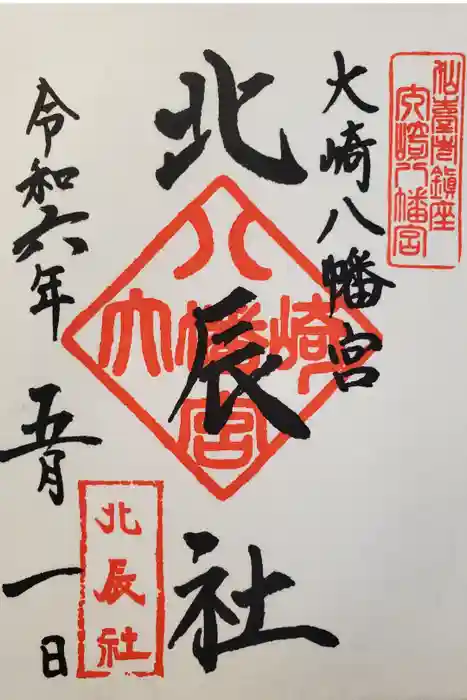 仙臺市鎮座
大崎八幡宮
大崎八幡宮
北辰社
八幡宮
大崎
北辰社
令和六年五月一日